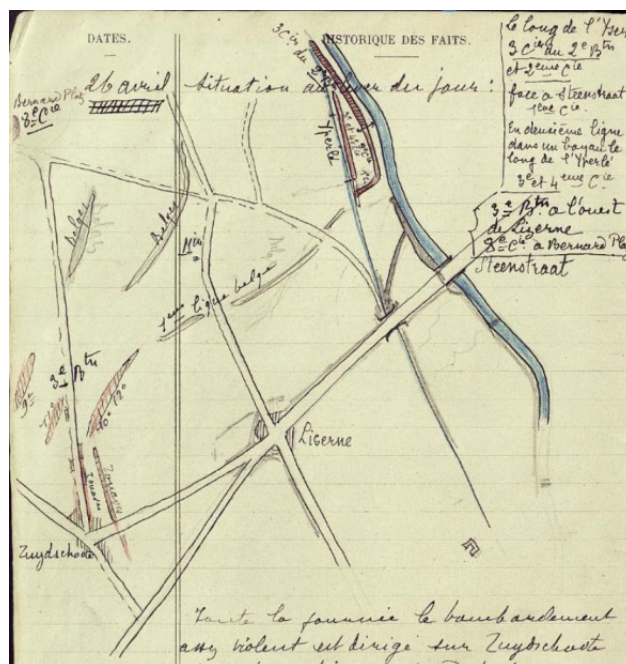 DATES.
HISTORIQUE DES FAITS.
26 avril
Situation au lever du jour :
Bernard Plaz
8e Cie
3 Cies du 2e
Le long de l'Yser
3 Cies du 2e Btn
et 2eme Cie
face à Steenstraat
1ere Cie.
En deuxième ligne
dans un boyau le
long de l'Yperlé
3e et 4eme Cie
3e Btn à l'ouest
de Lizerne
8e Cie à Bernard Plaz
Steenstraat
Yperlé
3e et 4e Cie
Belges
Belges
Min
1ere ligne belge
3e Btn
9e
11e
10e 12e
Zouaves
Zouaves
Lizerne
Zuydschoote
Toute la journée le bombardement
assez violent est dirigé sur Zuydschoote